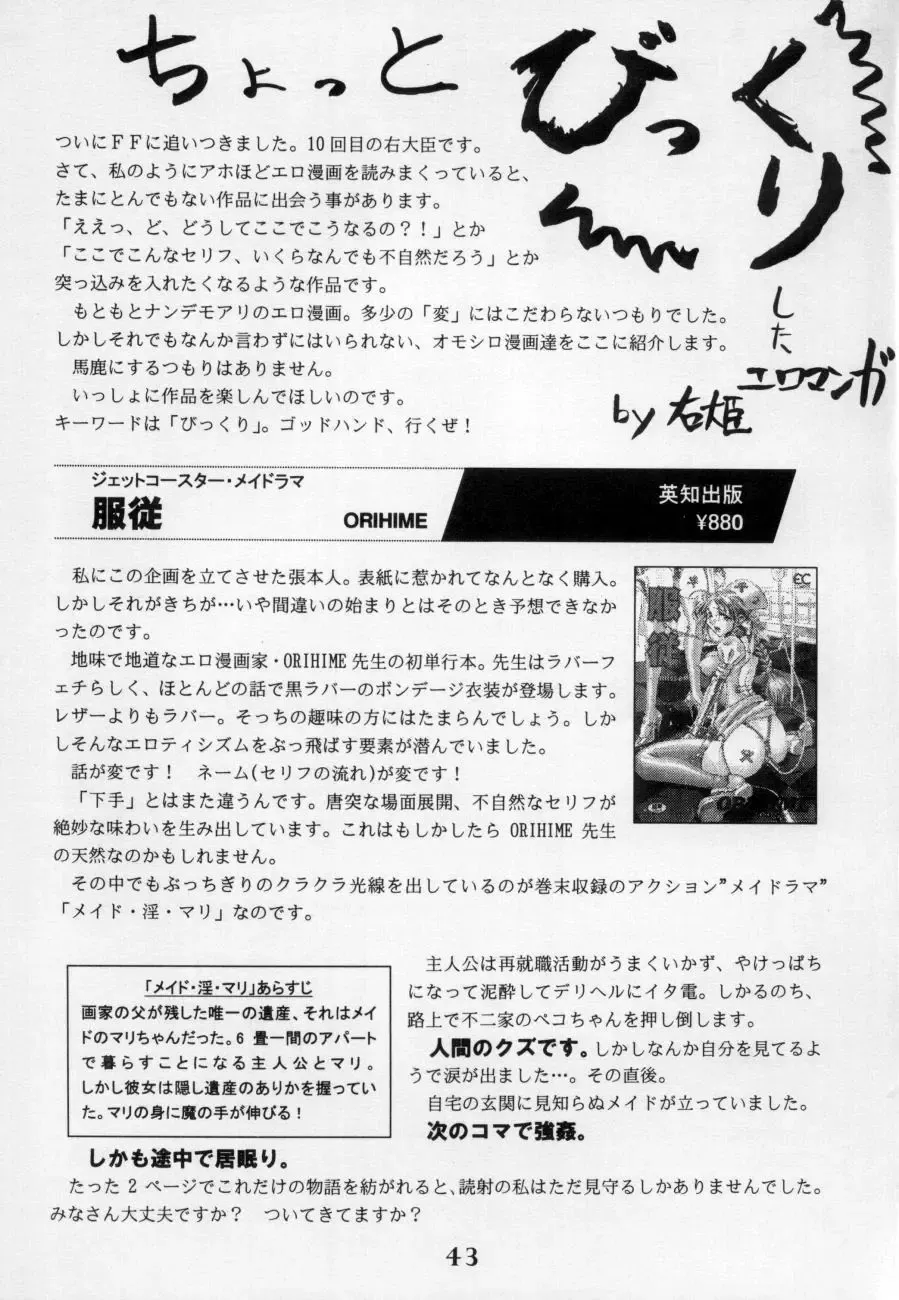 ちょっと
びっくり
した
エロマンガ
by 右大臣
ついにＦＦに追いつきました。10回目の右大臣です。
さて、私のようにアホほどエロ漫画を読みまくっていると、
たまにとんでもない作品に出会う事があります。
「ええっ、ど、どうしてここでこうなるの？！」とか
「ここでこんなセリフ、いくらなんでも不自然だろう」とか
突っ込みを入れたくなるような作品です。
もともとナンデモアリのエロ漫画。多少の「変」にはこだわらないつもりでした。
しかしそれでもなんか言わずにはいられない、オモシロ漫画達をここに紹介します。
馬鹿にするつもりはありません。
いっしょに作品を楽しんでほしいのです。
キーワードは「びっくり」。ゴッドハンド、行くぜ！
ジェットコースター・メイドラマ
服従 ORIHIME
英知出版
¥880
私にこの企画を立てさせた張本人。表紙に惹かれてなんとなく購入。
しかしそれがきちが…いや間違いの始まりとはそのとき予想できなか
ったのです。
地味で地道なエロ漫画家・ORIHIME 先生の初単行本。先生はラバーフ
ェチらしく、ほとんどの話で黒ラバーのボンデージ衣装が登場します。
レザーよりもラバー。そっちの趣味の方にはたまらんでしょう。しか
しそんなエロティシズムをぶっ飛ばす要素が潜んでいました。
話が変です！　ネーム(セリフの流れ)が変です！
「下手」とはまた違うんです。唐突な場面展開、不自然なセリフが
絶妙な味わいを生み出しています。これはもしかしたら ORIHIME 先生
の天然なのかもしれません。
その中でもぶっちぎりのクラクラ光線を出しているのが巻末収録のアクション”メイドラマ”
「メイド・淫・マリ」なのです。
服従
EC
ORIHIME
「メイド・淫・マリ」あらすじ
画家の父が残した唯一の遺産、それはメイ
ドのマリちゃんだった。6 畳一間のアパート
で暮らすことになる主人公とマリ。
しかし彼女は隠し遺産のありかを握ってい
た。マリの身に魔の手が伸びる！
主人公は再就職活動がうまくいかず、やけっぱち
になって泥酔してデリヘルにイタ電。しかるのち、
路上で不二家のペコちゃんを押し倒します。
人間のクズです。しかしなんか自分を見てるよ
うで涙が出ました…。その直後。
自宅の玄関に見知らぬメイドが立っていました。
次のコマで強姦。
しかも途中で居眠り。
たった 2 ページでこれだけの物語を紡がれると、読射の私はただ見守るしかありませんでした。
みなさん大丈夫ですか？　ついてきてますか？
43